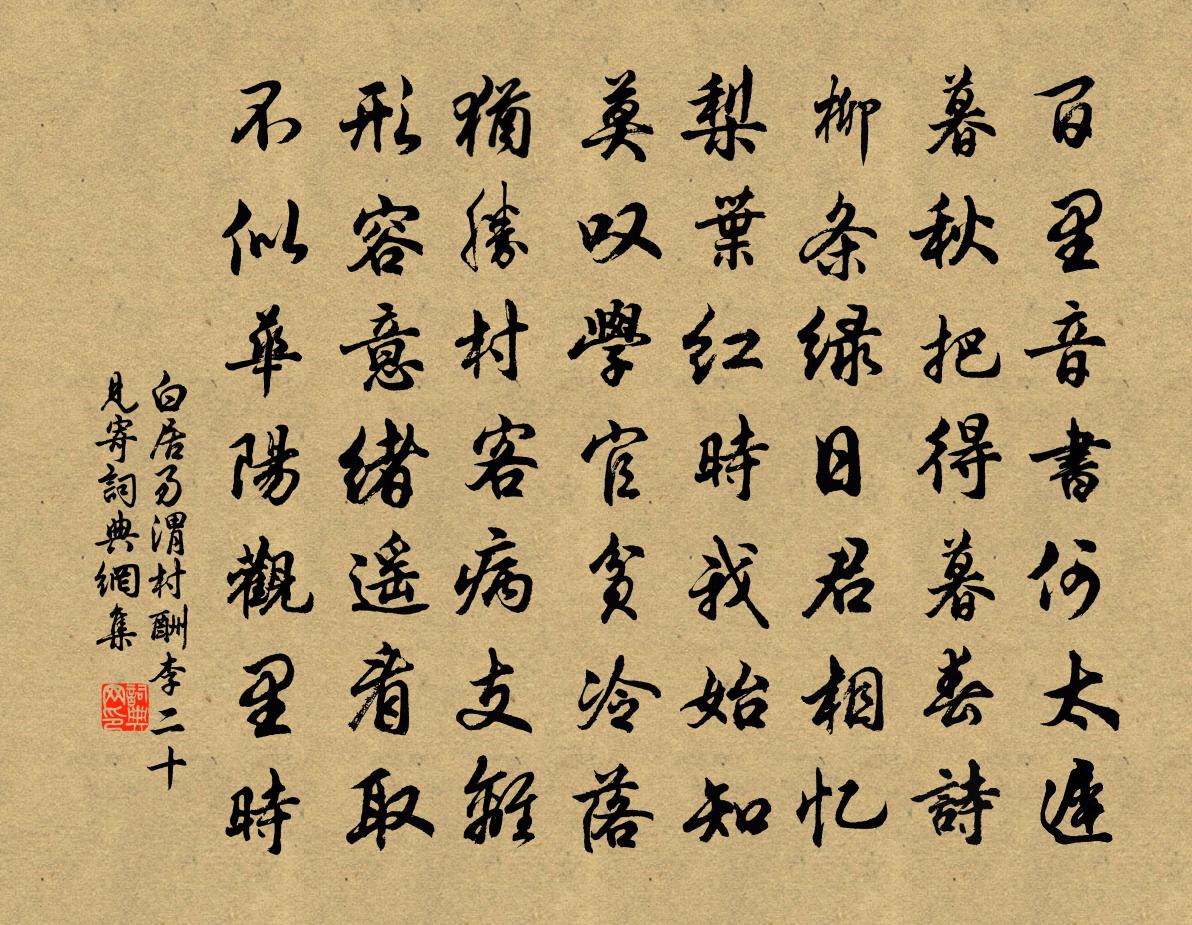 百里音書何太遲
暮秋把得暮春詩
柳条緑日君相忆
梨葉红時我始知
莫叹學官貧冷落
猶勝村客病支離
形容意緒遥看取
不似華陽觀里時
白居易渭村酬李二十
見寄詞典網集
詞典
网印